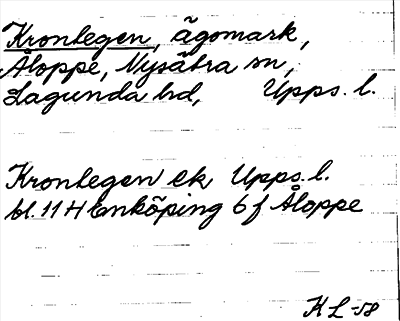 Kronlegen, ägomark,
Åloppe, Nysätra sn,
Lagunda hd, Upps. l.
Kronlegen ek Upps. l.
bl. 11 H Enköping 6 f Åloppe
KL -58